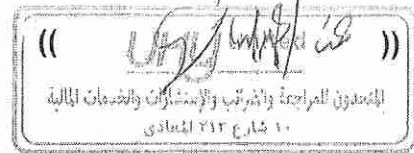 (( UHY United ))
المتحدون للمراجعة والضرائب والإستشارات والخدمات المالية
١٠ شارع ٢١٢ المعادى